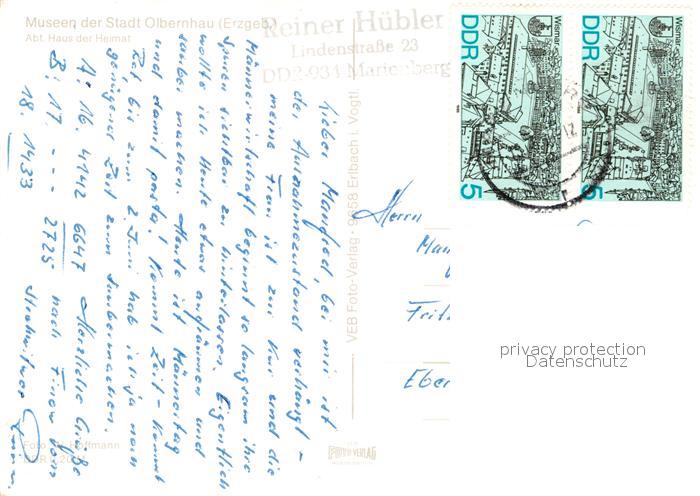 Museen der Stadt Olbernhau (Erzgeb.)
Abt. Haus der Heimat
Reiner Hübler
Lindenstraße 23
DDR-934 Marienberg
Lieber Manfred, bei mir ist
der Ausnahmezustand verhängt -
meine Frau ist zur Kur und die
Männerwirtschaft beginnt so langsam ihre
Spuren sichtbar zu hinterlassen. Eigentlich
wollte ich heute etwas aufräumen und
sauber machen. Heute ist Männertag
und damit basta! Kommt Zeit - kommt
Rat bis zum 2. Juni hab ich ja noch
genügend Zeit zum Saubermachen.
A: 16. 4142 6647 Herzliche Grüße
B: 17. - - - 2725 nach Finow vom
18. 1433 Strohwitwer
VEB Foto-Verlag · 9658 Erlbach i. Vogtl.
Herrn
Man
Fritz
Eber
Foto: Hoffmann
FOTO-VERLAG
DDR
Wismar
5
DDR
Wismar
5
privacy protection
Datenschutz